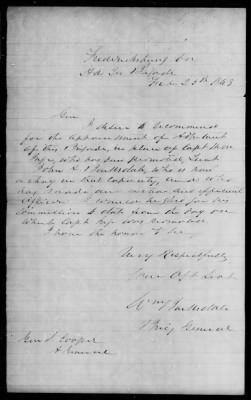 Fredericksburg Va
Hd Qrs Brigade
Feby 25th 1863
Gen
I desire to recommend
for the appointment of Adjutant
of this Brigade, in place of Capt
who has been promoted, Lieut
John A. Barksdale, who is now
acting in that capacity, and who
has made an active and efficient
Officer. I would be glad for his
Commission to date from the day on
which Capt was promoted
I have the honor to be
Very Respectfully
Your Obt Servt
Wm Barksdale
Brig General
Genl S Cooper